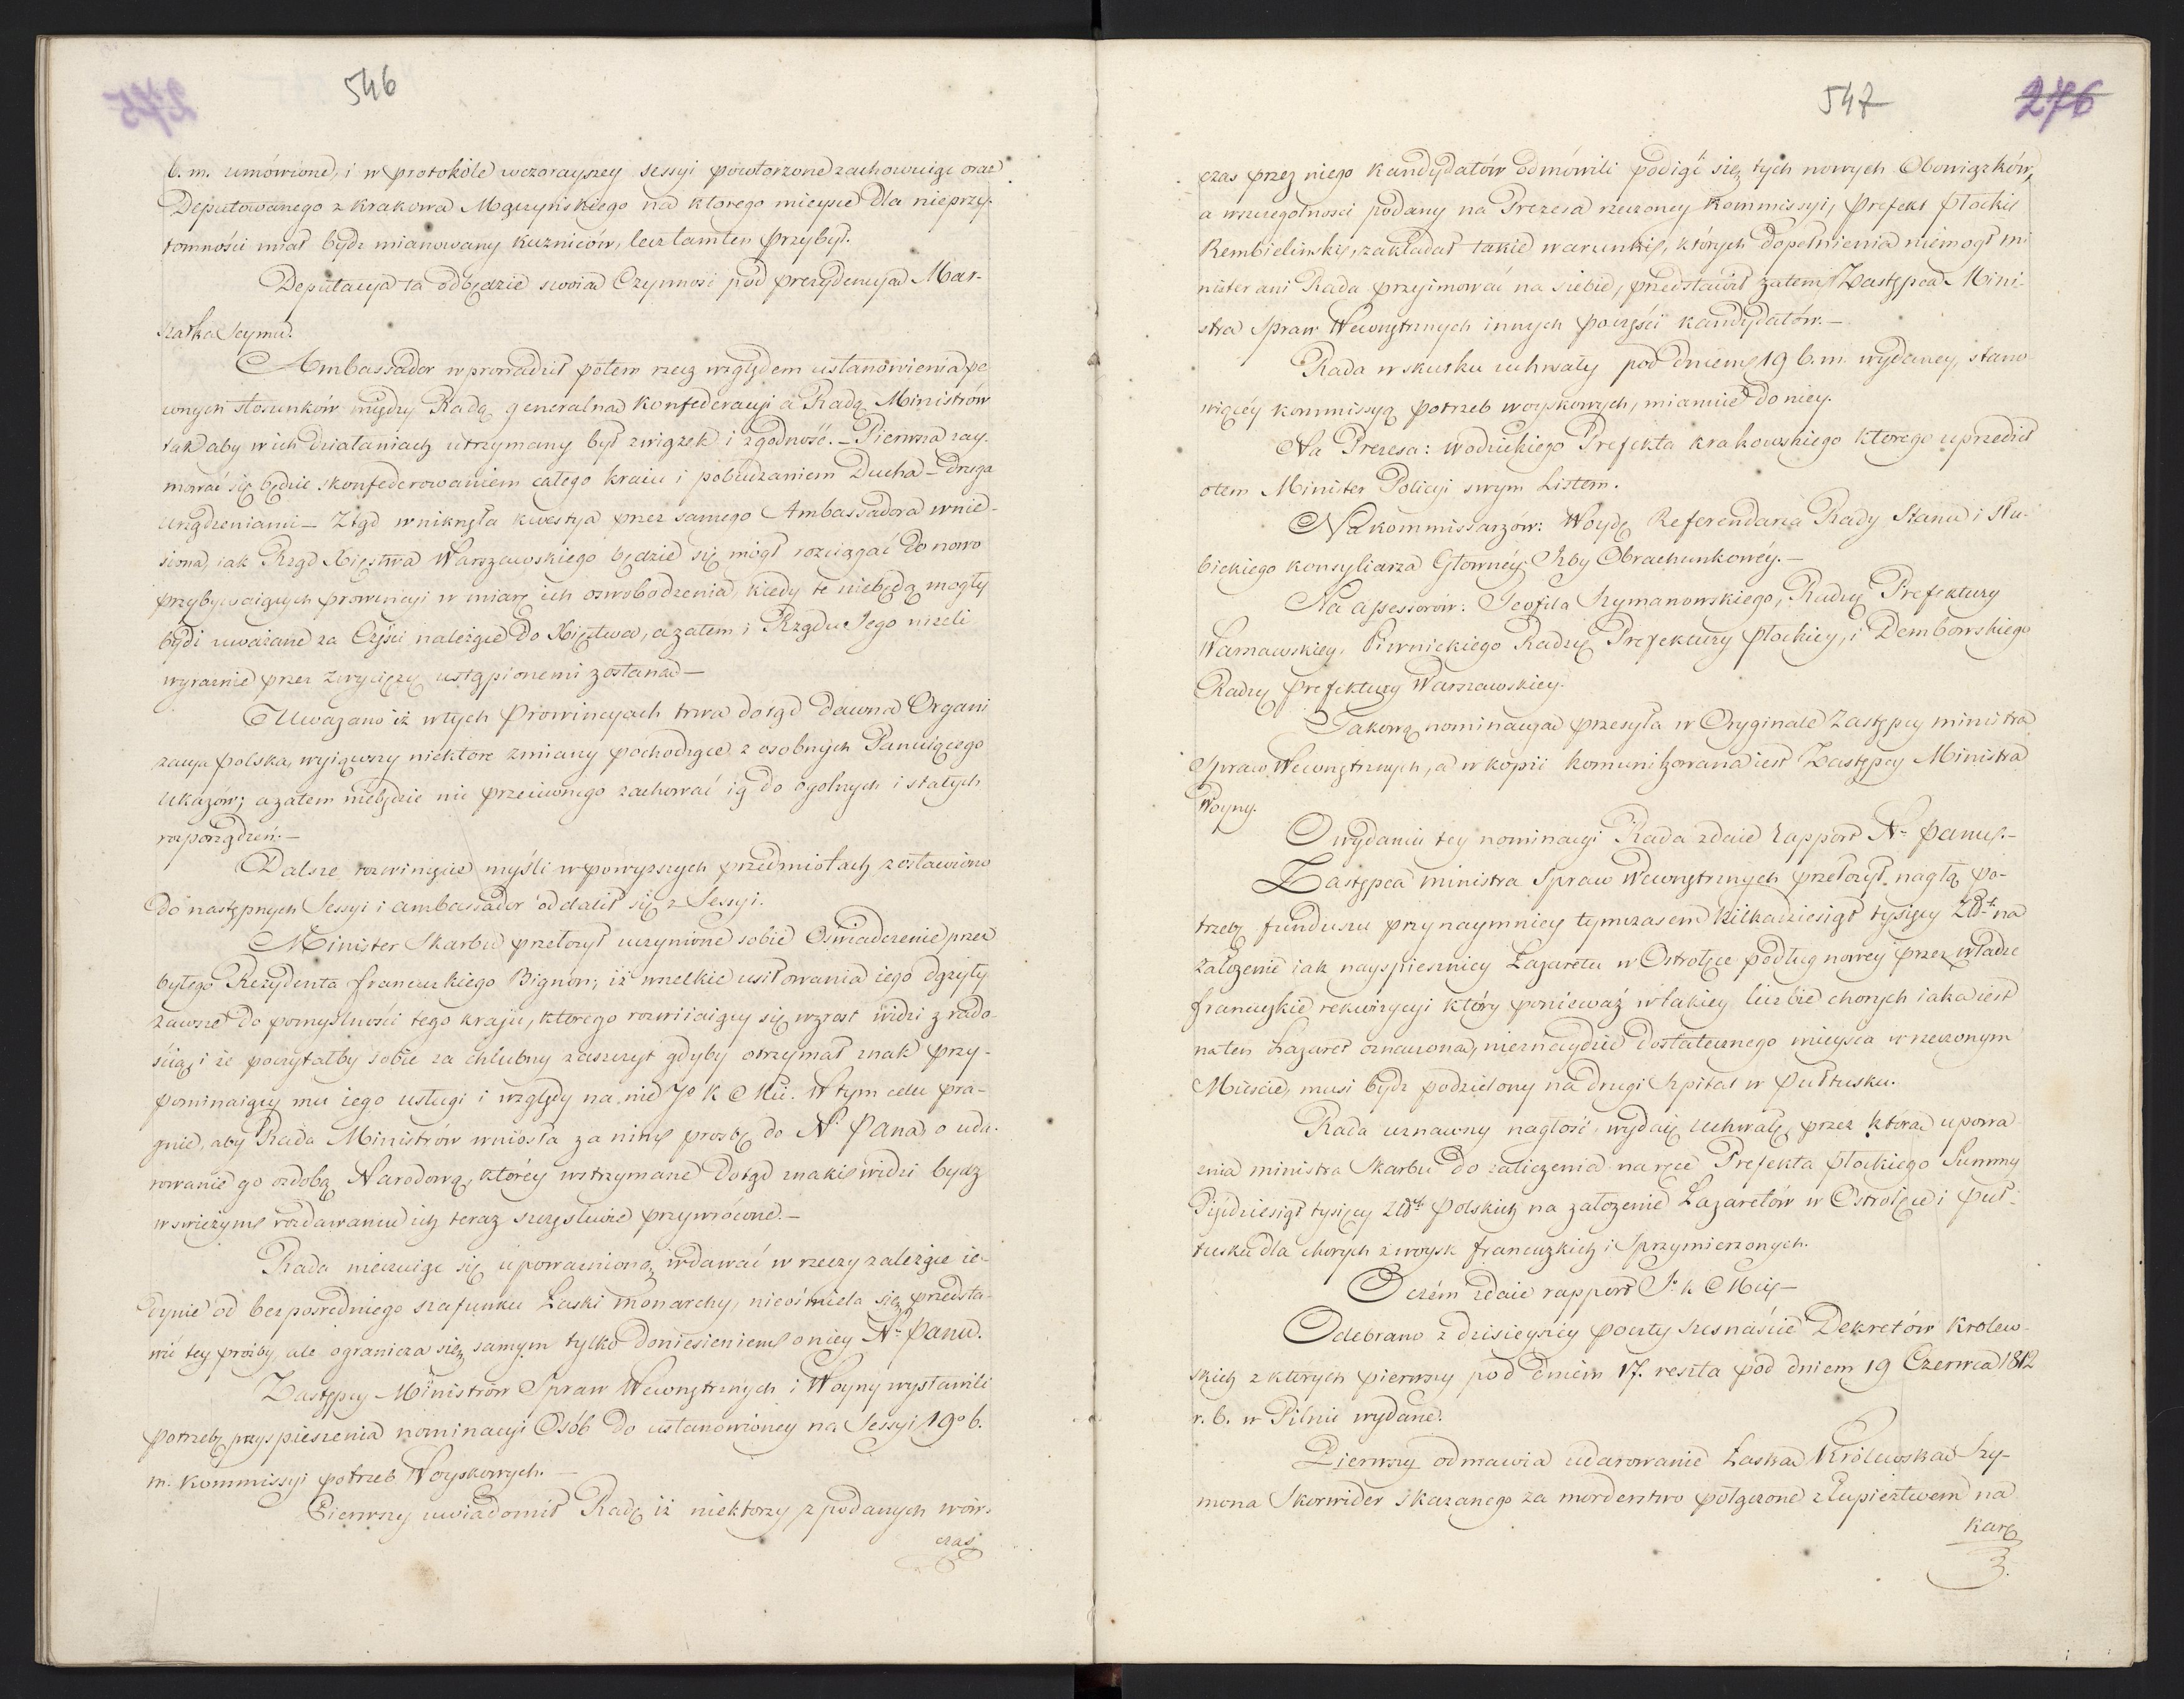 546
b. m. umówione, i w protokóle wczorayszey sessyi powtorzone zachowuiąc oraz
Deputowanego z Krakowa Mączyńskiego na ktorego mieysce dla nieprzy-
tomności miał bydz mianowany Kuzniców, lecz tamten przybył.
Deputacya ta odbędzie swoia Czynność pod prezydencya Mar-
szałka Seymu.
Ambassador wprowadził potem rzecz względem ustanowienia pe
wnych stosunków między Radą generalną Konfederacyi a Radą Ministrów
tak aby w ich działaniach utrzymany był związek i zgodność. – Pierwsza zay-
mować się będzie skonfederowaniem całego kraiu i pobudzaniem Ducha – druga
urządzeniami – Ztąd wniknęła kwestya przez samego Ambassadora wnie-
siona, iak Rząd Xięstwa Warszawskiego będzie się mógł rozciągać do nowo
przybywaiących prowincyi w miarę ich oswobodzenia, kiedy te niebędą mogły
bydź uważane za Części należące do Xięstwa, a zatem i Rządu Jego nizeli
wyraznie przez zwycięzcę ustąpionemi zostaną –
Uważano iż w tych Prowincyach trwa dotąd dawna Organi
zacya polska, wyiąwszy niektore zmiany pochodzące z osobnych Panuiącego
Ukazów; a zatem niebędzie nic przeciwnego zachować ią do ogolnych i stałych
rozporządzeń. –
Dalsze rozwinięcie myśli w powyzszych przedmiotach zostawiono
do następnych Sessyi i ambassador oddalił się z Sessyi.
Minister Skarbu przełożył uczynione sobie Oswiadczenie przez
byłego Rezydenta francuzkiego Bignon; iż wszelkie usiłowania iego dążyły
zawsze do pomyslności tego kraju, ktorego rozwiiaiący się wzrost widzi z rado-
ścią, i że poczytałby sobie za chlubny zaszczyt gdyby otrzymał znak przy-
pominaiący mu iego usługi i względy na nie Jo K Mci. W tym celu pra-
gnie, aby Rada Ministrów wniosła za nim prozbę do N. Pana, o uda-
rowanie go ozdobą Narodową, którey wstrzymane dotąd znaki widzi bydz
w swieżym rozdawaniu ich teraz szczęsliwie przywrócone. –
Rada nieczuiąc się upoważnioną wdawać w rzeczy zależące ie-
dynie od bezposredniego szafunku Łaski monarchy, nieośmiela się przedsta-
wić tey prożby, ale ogranicza się samym tylko doniesieniem o niey N. Panu.
Zastępcy Ministrów Spraw Wewnętrznych i Woyny wystawili
potrzebę przyspieszenia nominacyi Osób do ustanowioney na Sessyi 19o b.
m. Kommissyi potrzeb Woyskowych. –
Pierwszy uwiadomił Radę iż niektorzy z podanych wów-
czas
547
276
czas przez niego Kandydatów odmówili podiąć się tych nowych Obowiązków,
a wszczegolnosci podany na Prezesa rzeczoney Kommissyi, Prefekt Płocki
Rembielinski, zakładał takie warunki, których dopełnienia niemogł mi
nister ani Rada przyimować na siebie, przedstawił zatem Zastępca Mini-
stra Spraw Wewnętrznych innych poczęści kandydatów. –
Rada w skutku uchwały pod dniem 19 b. m. wydaney, stano-
wiącéy kommissyą potrzeb woyskowych, mianuie do niey.
Na Prezesa: Wodzickiego Prefekta Krakowskiego ktorego uprzedził
otem Minister Policyi swym Listem.
Na kommissarzów: Woydę Referendarza Rady Stanu i Słu-
bickiego konsyliarza Głównéy Izby Obrachunkowéy. –
Na assessorów: Teofila Szymanowskiego, Radzcę Prefektury
Warszawskiey, Piwnickiego Radzcę Prefektury płockiey, i Dembowskiego
Radzcę prefektury Warszawskiey.
Takową nominacyą przesyła w Oryginale Zastępcy ministra
Spraw Wewnętrznych, a w kopii komunikowana iest Zastępcy Ministra
Woyny.
O wydaniu tey nominacyi Rada zdaie rapport N. Panu. –
Zastępca ministra Spraw Wewnętrznych przełożył nagłą po-
trzebę funduszu przynaymniey tymczasem kilkadziesiąt tysięcy Złt na
założenie iak nayspieszniey Lazaretu w Ostrołęce podług nowey przez władze
francuzkie rekwizycyi który ponieważ w takiey liczbie chorych iaka iest
na ten Lazaret oznaczona, nieznaydzie dostatecznego mieysca w rzeczonym
Miescie, musi bydz podzielony na drugi Szpital w Pułtusku.
Rada uznawszy nagłość, wydaię uchwałę, przez którą upowa
znia ministra Skarbu do zaliczenia na ręce Prefekta płockiego Summy
Pięćdziesiąt tysięcy Złt Polskich na założenie Lazaretów w Ostrołęce i Puł-
tusku dla chorych z woysk francuzkich i Sprzymierzonych.
O czém zdaie rapport J. K Mci –
Odebrano z dzisieyszey poczty szesnaście Dekretów Krolew-
skich z których pierwszy pod dniem 17. reszta pod dniem 19 Czerwca 1812
r. b. w Pilnic wydane.
Pierwszy odmawia udarowanie Łaską Królewską Szy-
mona Skorwider skazanego za morderstwo połączone z Łupieztwem na
karę